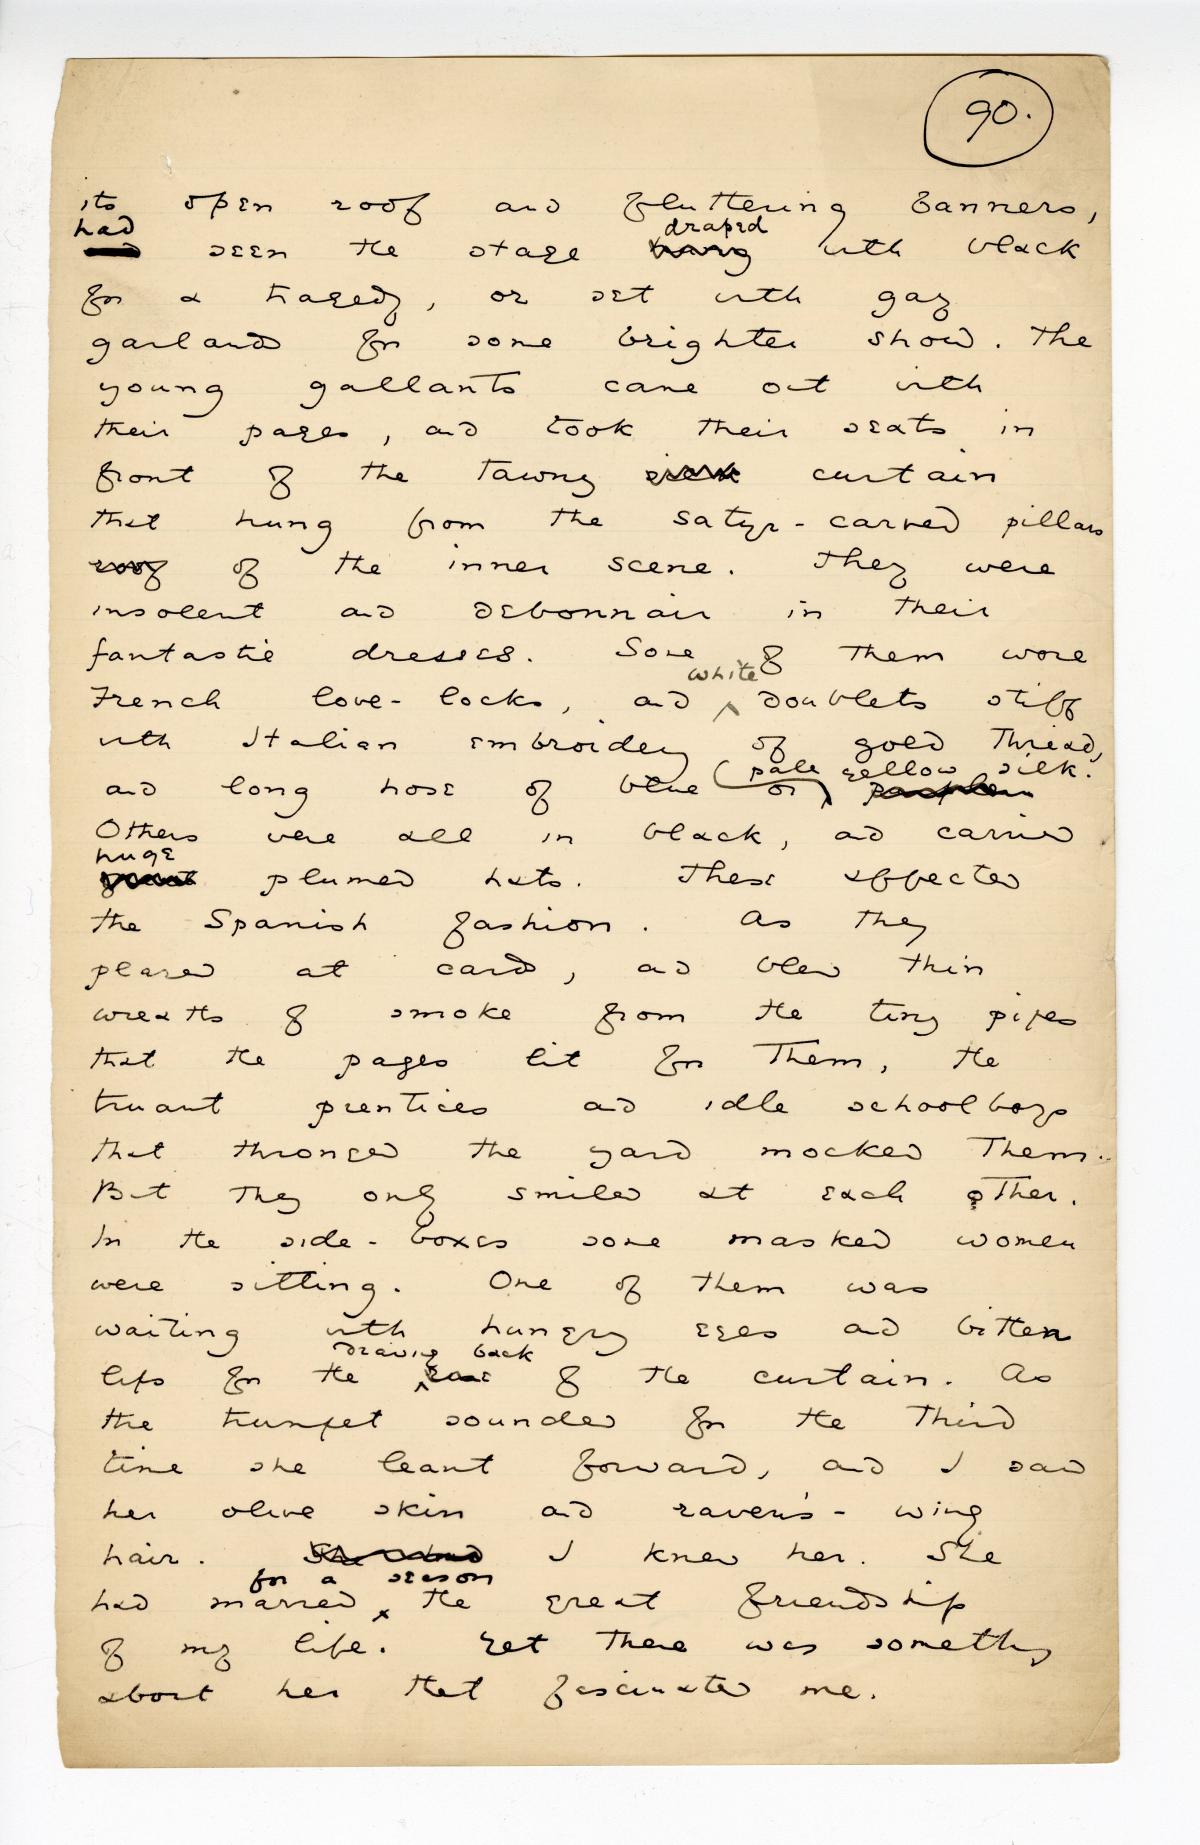 90.
its open roof and fluttering banners,
had draped
seen the stage hung with black
for a tragedy, or set with gay
garlands for some brighter show. The
young gallants came out with
their pages, and took their seats in
front of the tawny curtain
that hung from the satyr-carved pillars
roof of the inner scene. They were
insolent and debonnair in their
fantastic dresses. Some of them wore
white
French love-locks, and ^ doublets stiff
with Italian embroidery of gold thread,
pale yellow silk.
and long hose of blue or
Others were all in black, and carried
huge
plumed hats. These affected
the Spanish fashion. As they
played at cards, and blew thin
wreaths of smoke from the tiny pipes
that the pages lit for them, the
truant prentices and idle schoolboys
that thronged the yard mocked them.
But they only smiled at each other.
In the side-boxes some masked women
were sitting. One of them was
waiting with hungry eyes and bitten
drawing back
lips for the ^ of the curtain. As
the trumpet sounded for the third
time she leant forward, and I saw
her olive skin and raven's-wing
hair. I knew her. She
for a season
had marred ^ the great friendship
of my life. Yet there was something
about her that fascinated me.